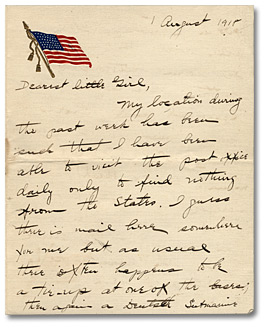 1 August 1918
Dearest little Girl,
My location during
the past week has been
such that I have been
able to visit the post office
daily only to find nothing
from the States. I guess
there is mail here somewhere
for me but as usual
there often happens to be
a tie-up at one of the bases;
then again a Submarine